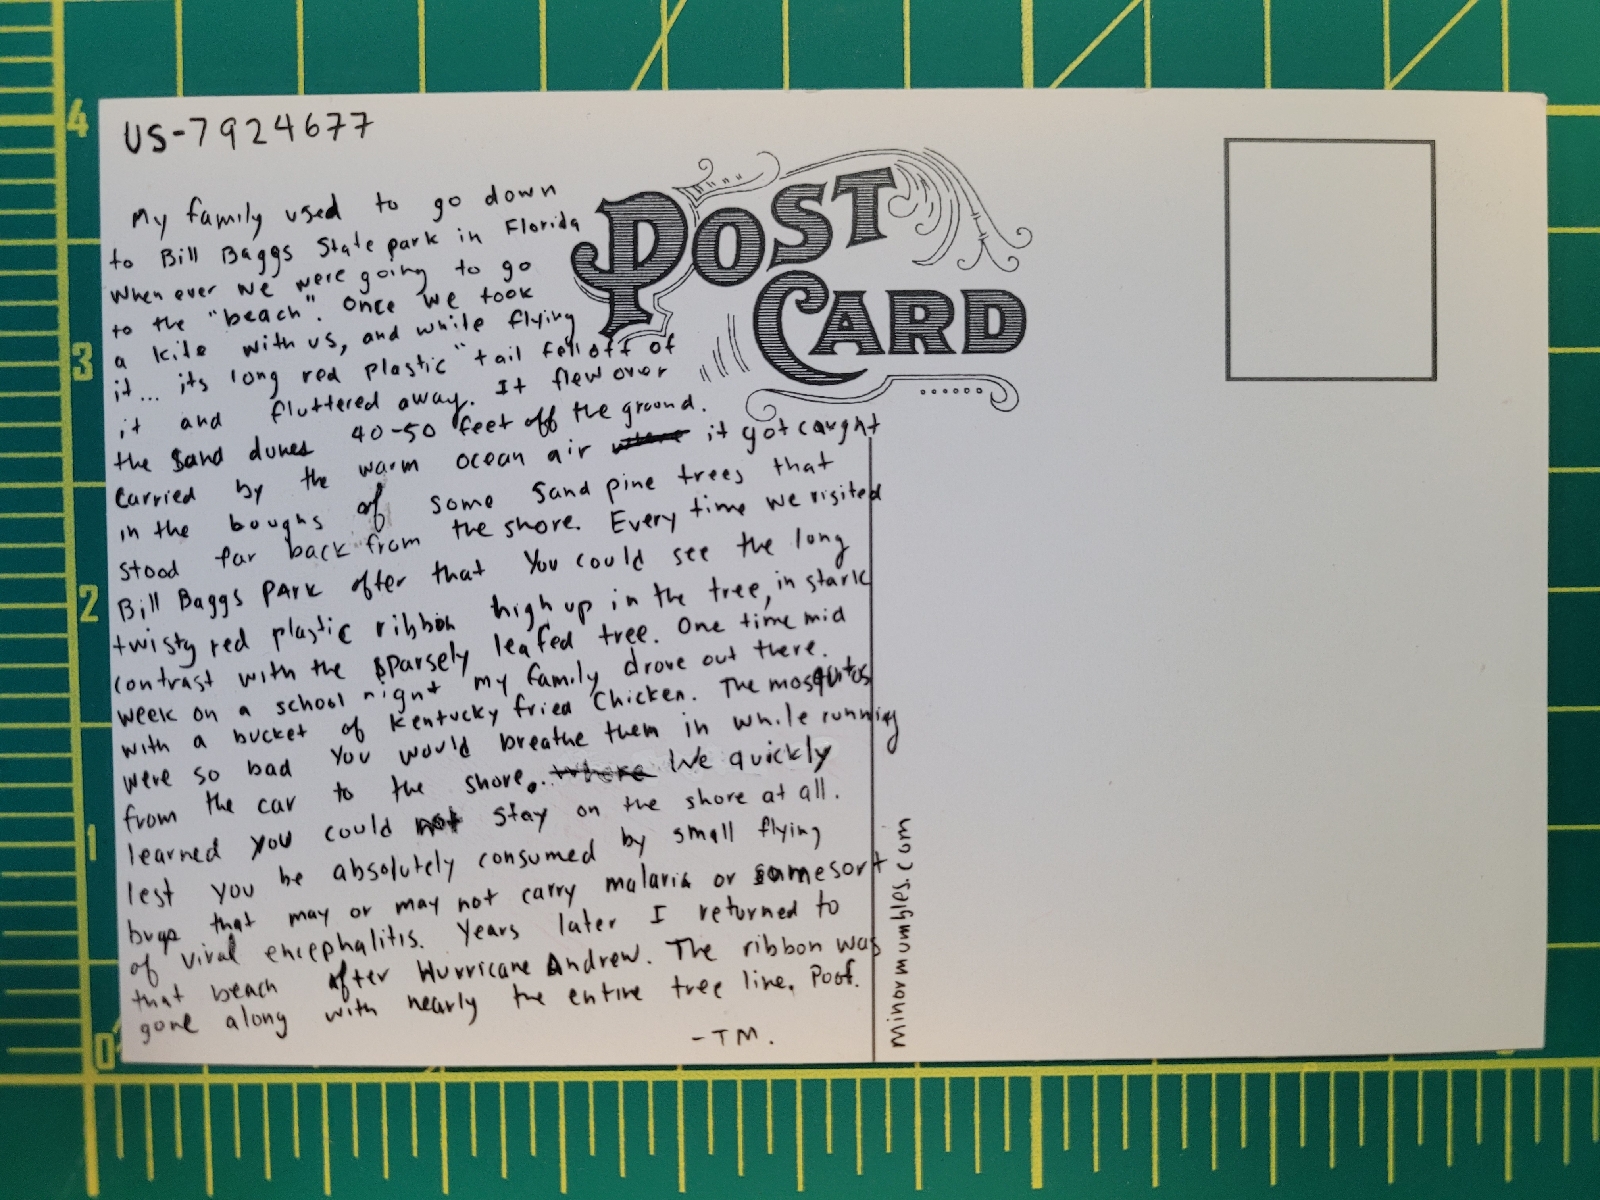 4
3
2
1
0
US-7924677
POST
CARD
My family used to go down
to Bill Baggs State park in Florida
when ever we were going to go
to the "beach". Once we took
a kite with us, and while flying
it... its long red plastic "tail fell off of
it and fluttered away. It flew over
the sand dunes 40-50 feet off the ground.
Carried by the warm ocean air it got caught
in the boughs of some sand pine trees that
stood far back from the shore. Every time we visited
Bill Baggs PARK after that You could see the long
twisty red plastic ribbon high up in the tree, in stark
contrast with the sparsely leafed tree. One time mid
week on a school night my family drove out there.
with a bucket of Kentucky fried Chicken. The mosquitos
were so bad You would breathe them in while running
from the car to the shore. where We quickly
learned you could not stay on the shore at all.
lest you be absolutely consumed by small flying
bugs that may or may not carry malaria or some sort
of viral encephalitis. Years later I returned to
that beach after Hurricane Andrew. The ribbon was
gone along with nearly the entire tree line. Poof.
-TM.
minormumbles.com